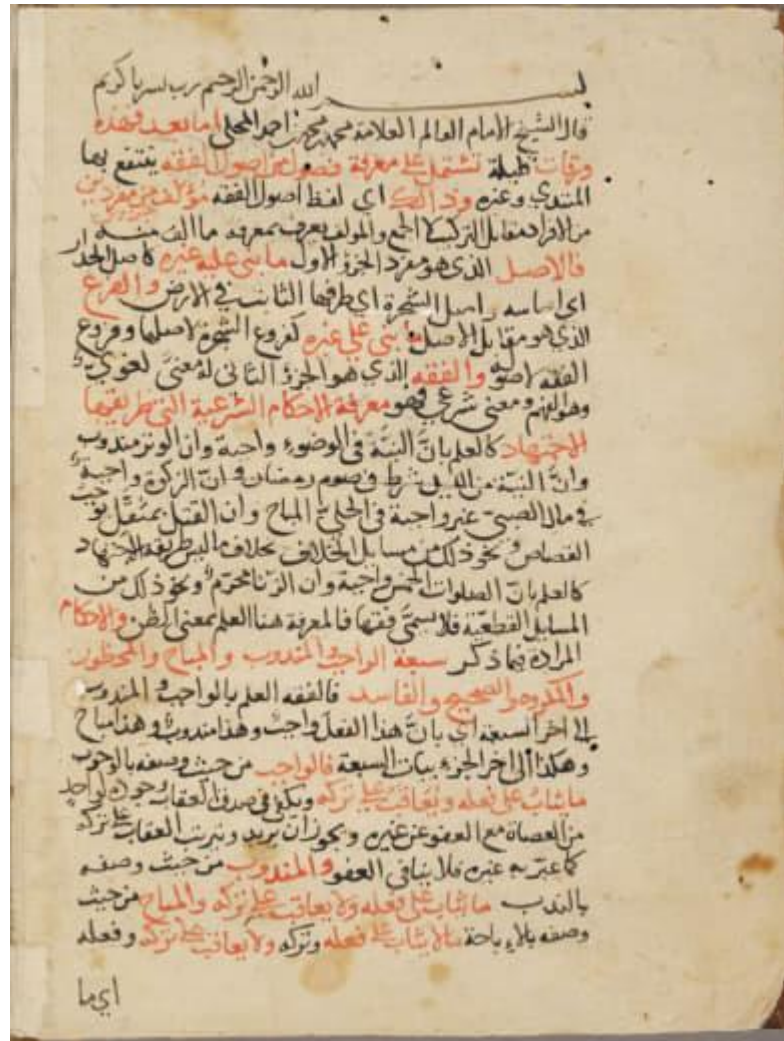 بسم الله الرحمن الرحيم رب يسر يا كريم
قال الشيخ الامام العالم العلامة محمد بن احمد المحلي اما بعد فهذه
ورقات قليلة تشتمل على معرفة فصول من اصول الفقه ينتفع بها
المبتدي وغيره وذلك اي لفظ اصول الفقه مؤلف من جزئين مفردين
من الافراد مقابل التركيب لا الجمع والمولف يعرف بمعرفة ما الف منه
فالاصل الذي هو مفرد الجزؤ الاول ما بني عليه غيره كاصل الجدار
اي اساسه واصل الشجرة اي طرفها الثابت في الارض والفرع
الذي هو مقابل الاصل ما يبنى على غيره كفروع الشجرة لاصلها وفروع
الفقه لاصوله والفقه الذي هو الجزؤ الثاني له معنى لغوي
وهو الفهم ومعنى شرعي فهو معرفة الاحكام الشرعية التي طريقها
الاجتهاد كالعلم بانَّ النيَّة في الوضوء واجبة وان الوتر مندوب
وانَّ النيَّة من الليل شرط في صوم رمضان وانّ الزكوة واجبة
في مال الصبيّ غير واجبة في الحليّ المباح وان القتل بمثقَّل يوجب
القصاص ونحو ذلك من مسايل الخلاف بخلاف ما ليس طريقه الاجتهاد
كالعلم بانّ الصلوات الخمس واجبة وان الزنا محرّم ونحو ذلك من
المسايل القطعيّة فلا يسمّى فقها فالمعرفة هنا العلم بمعنى الظن والاحكام
المرادة فيما ذكر سبعة الواجب والمندوب والمباح والمحظور
والمكروه والصحيح والفاسد فالفقه العلم بالواجب والمندوب
الى اخر السبعة اي بانَّ هذا الفعل واجب وهذا مندوب وهذا مباح
وهكذا الى اخر الجزء بيان السبعة فالواجب من حيث وصفه بالوجوب
ما يثاب على فعله ويُعاقب على تركه ويكفي في صدق العقاب وجوده لواحد
من العصاة مع العفو عن غيره ويجوز ان يريد وترتب العقاب على تركه
كما عبّر به غيره فلا ينافي العفو والمندوب من حيث وصفه
بالندب ما يثاب على فعله ولا يعاقب على تركه والمباح من حيث
وصفه بالاباحة ما لا يثاب على فعله وتركه ولا يعاقب على تركه وفعله
اي ما